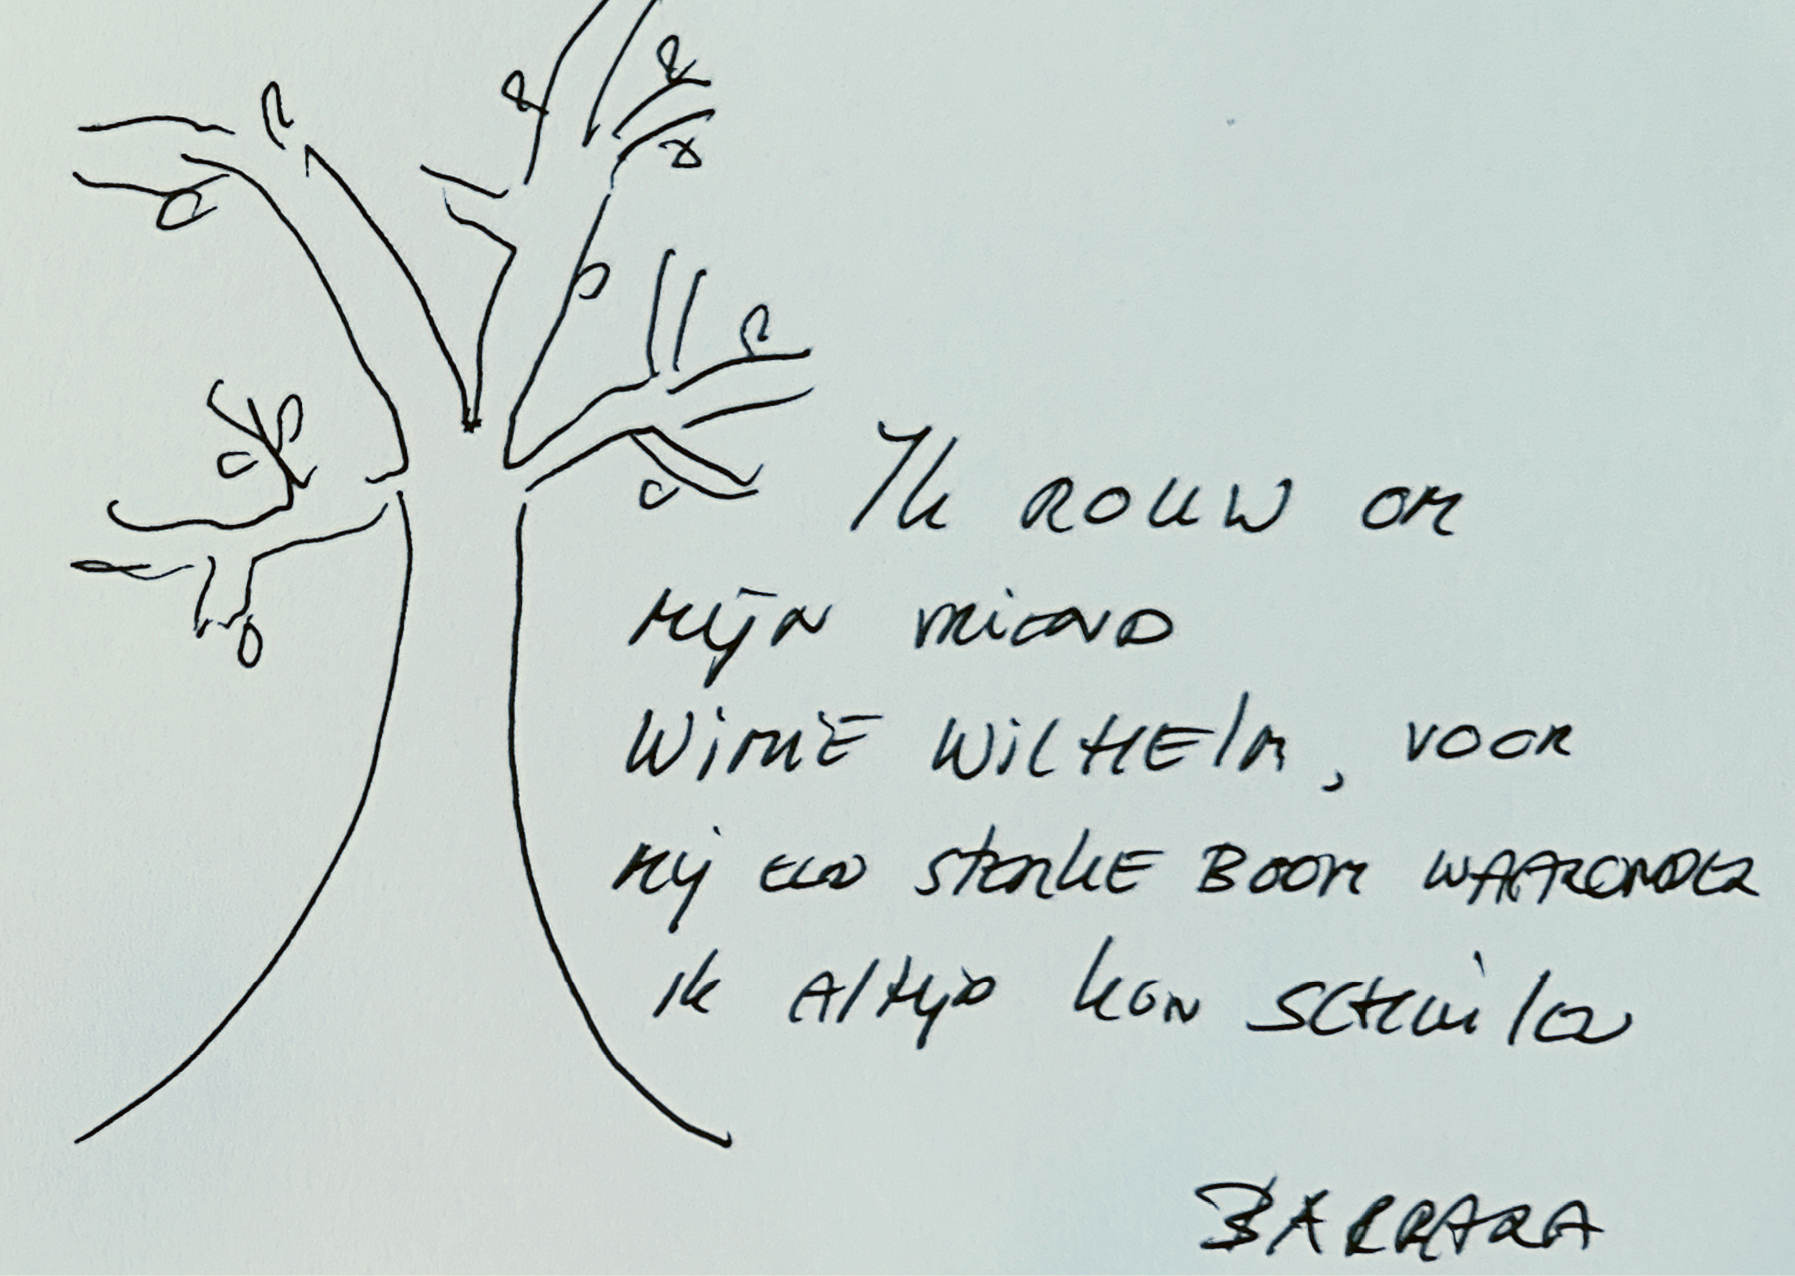 Ik rouw om
mijn vriend
Wimie Wilhelm, voor
mij een sterke boom waaronder
ik altijd kon schuilen
Barbara